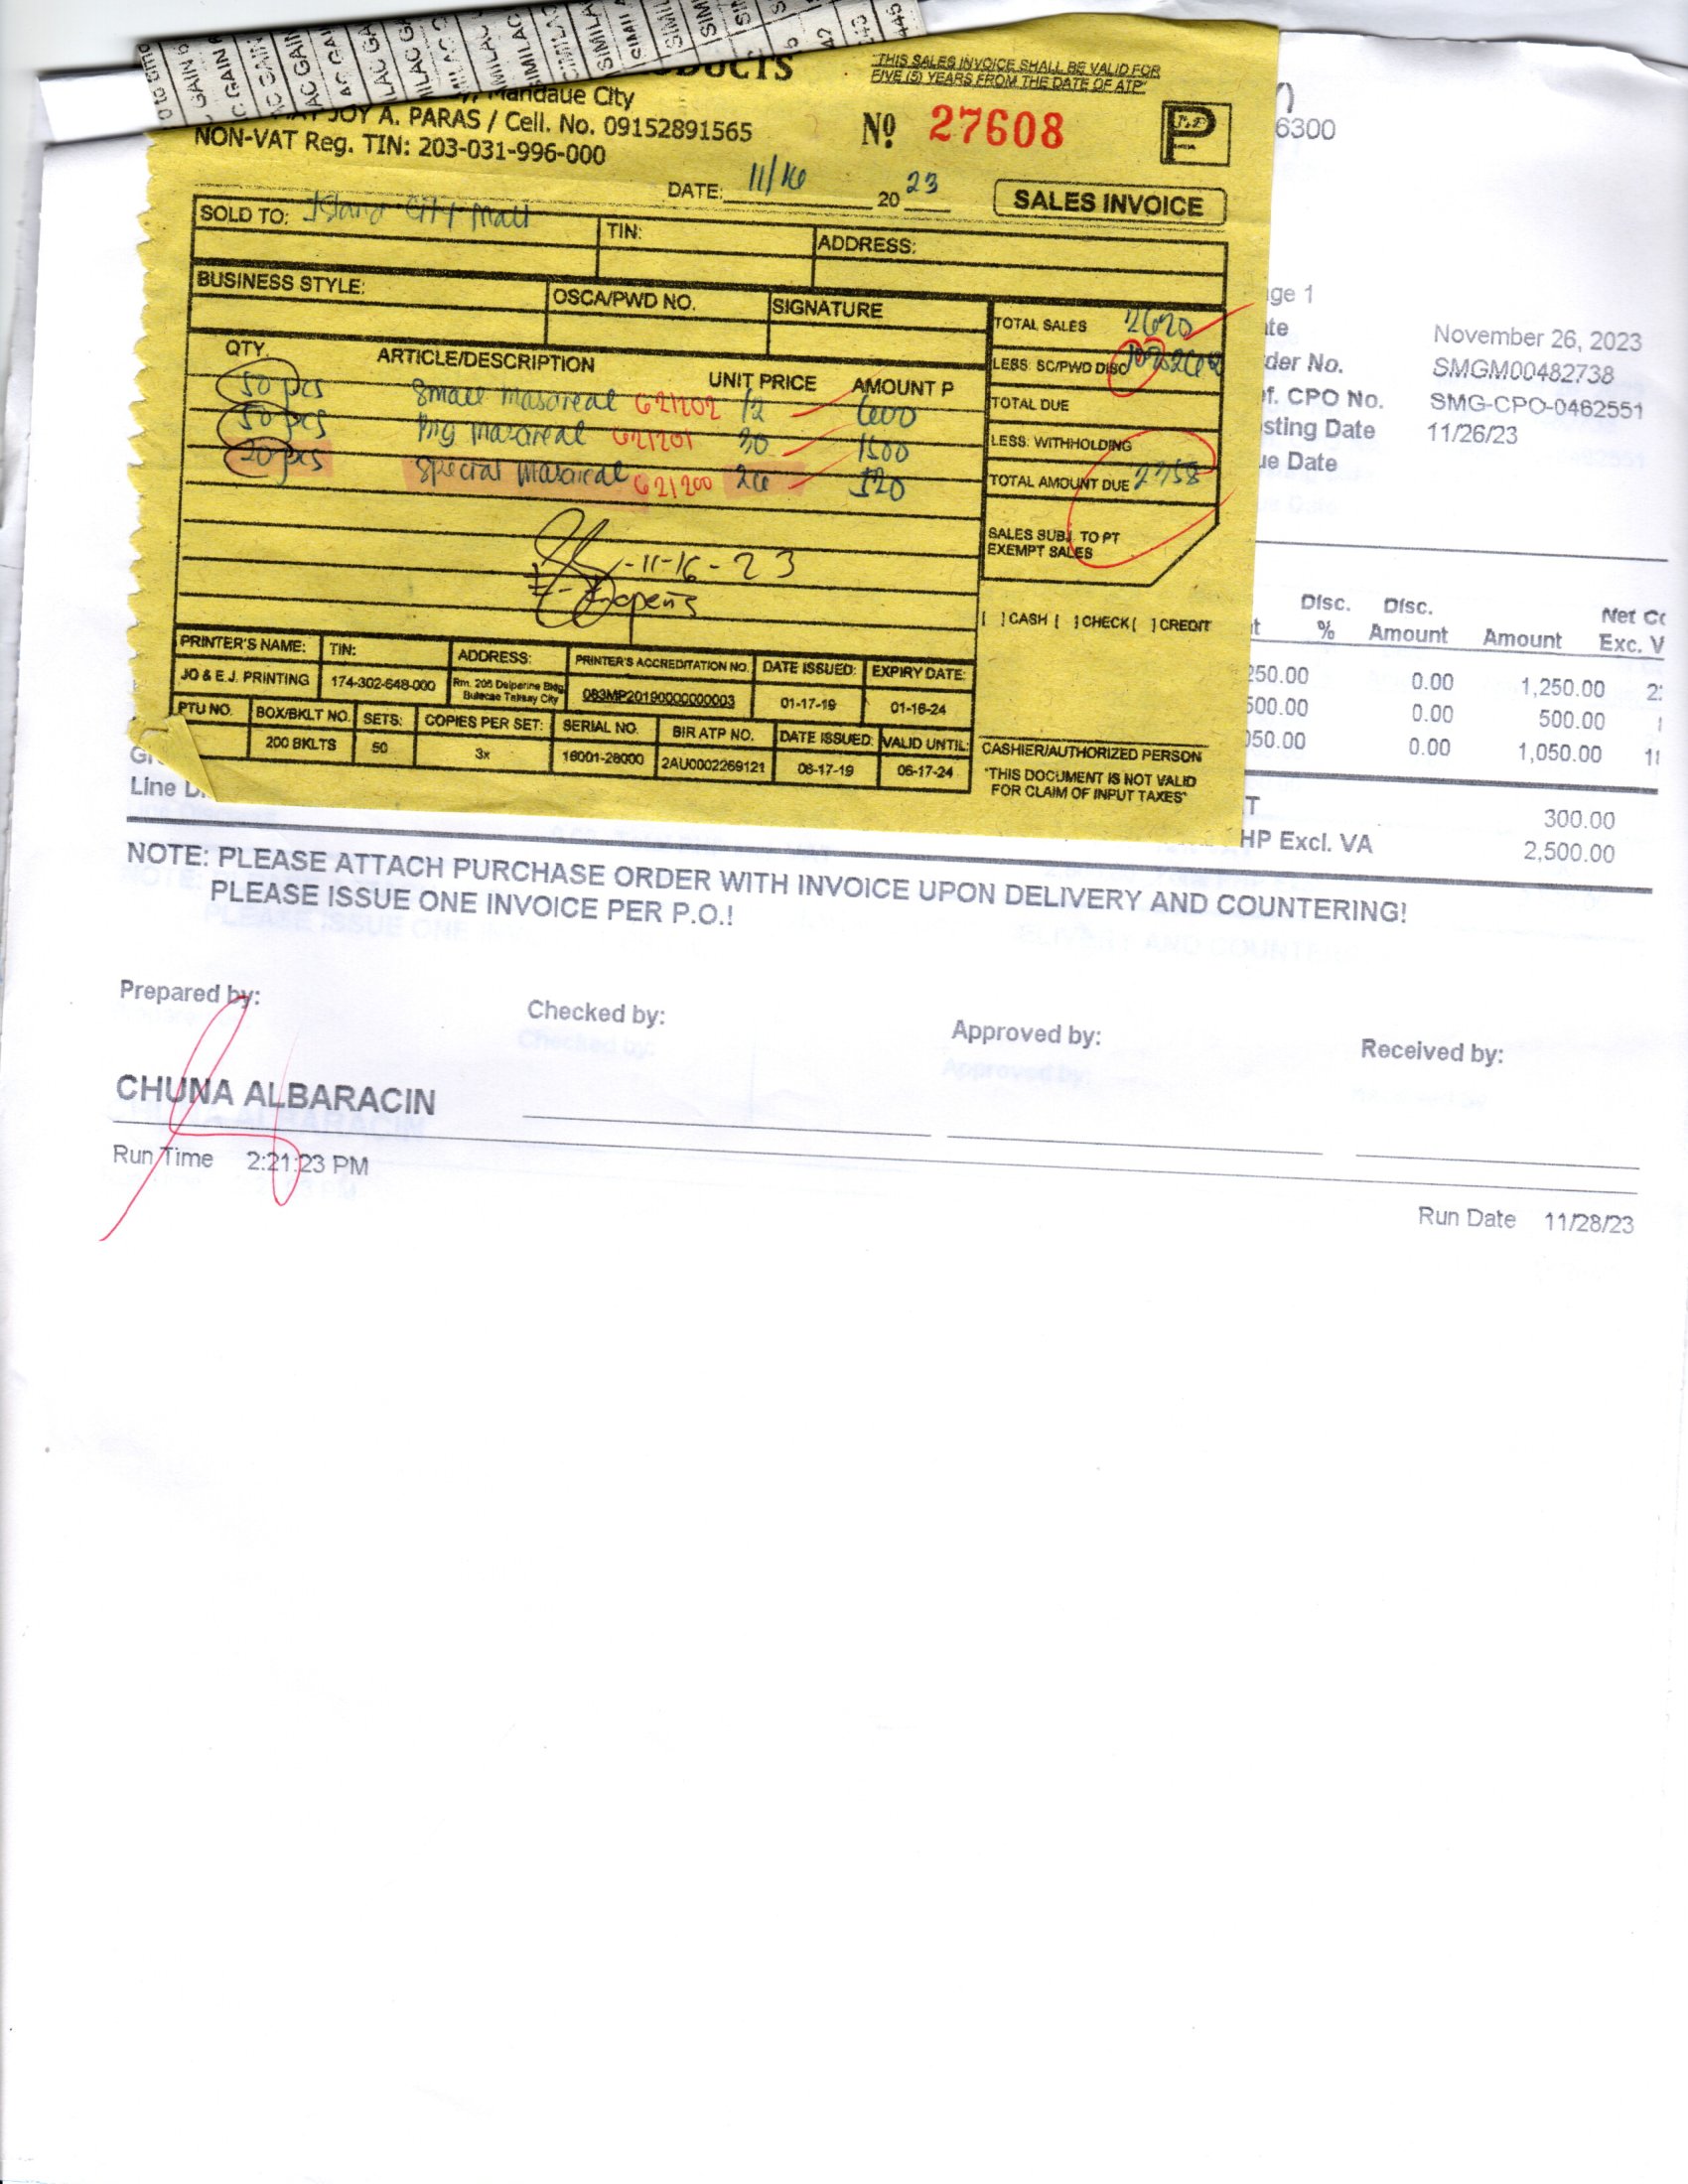 0 to 6mo
GAIN
C GAIN
AC GAIN
LAC GA
ILAC G
MILAC
SIMILAC
SIMILA
SIMIL
SIM
PRODUCTS
"THIS SALES INVOICE SHALL BE VALID FOR
FIVE (5) YEARS FROM THE DATE OF ATP"
Mandaue City
JOY A. PARAS / Cell. No. 09152891565
NON-VAT Reg. TIN: 203-031-996-000
Nº 27608
6300
DATE: 11/16 20 23
SALES INVOICE
SOLD TO: Island City Mall
TIN:
ADDRESS:
BUSINESS STYLE:
OSCA/PWD NO.
SIGNATURE
QTY.
ARTICLE/DESCRIPTION
UNIT PRICE
AMOUNT P
50 pcs Small Masareal 621202 12 600
50 pcs Big Masareal 621201 30 1500
20 pcs Special Masareal 621200 26 520
-11-16-23
TOTAL SALES 2620
LESS: SC/PWD DISC 10% 262
TOTAL DUE
LESS: WITHHOLDING
TOTAL AMOUNT DUE 2358
SALES SUBJ. TO PT
EXEMPT SALES
[ ] CASH [ ] CHECK [ ] CREDIT
PRINTER'S NAME: TIN: ADDRESS: PRINTER'S ACCREDITATION NO. DATE ISSUED: EXPIRY DATE:
JO & E.J. PRINTING 174-302-648-000 Rm. 206 Delperine Bldg. Bulacao Talisay City 083MP20190000000003 01-17-19 01-16-24
PTU NO. BOX/BKLT NO. SETS: COPIES PER SET: SERIAL NO. BIR ATP NO. DATE ISSUED: VALID UNTIL:
200 BKLTS 50 3x 16001-26000 2AU0002269121 06-17-19 06-17-24
CASHIER/AUTHORIZED PERSON
"THIS DOCUMENT IS NOT VALID
FOR CLAIM OF INPUT TAXES"
ge 1
te November 26, 2023
der No. SMGM00482738
f. CPO No. SMG-CPO-0462551
sting Date 11/26/23
ue Date
t Disc. % Disc. Amount Amount Net Co Exc. V
250.00 0.00 1,250.00
500.00 0.00 500.00
050.00 0.00 1,050.00
T 300.00
HP Excl. VA 2,500.00
Line D
NOTE: PLEASE ATTACH PURCHASE ORDER WITH INVOICE UPON DELIVERY AND COUNTERING!
PLEASE ISSUE ONE INVOICE PER P.O.!
Prepared by:
Checked by:
Approved by:
Received by:
CHUNA ALBARACIN
Run Time 2:21:23 PM
Run Date 11/28/23